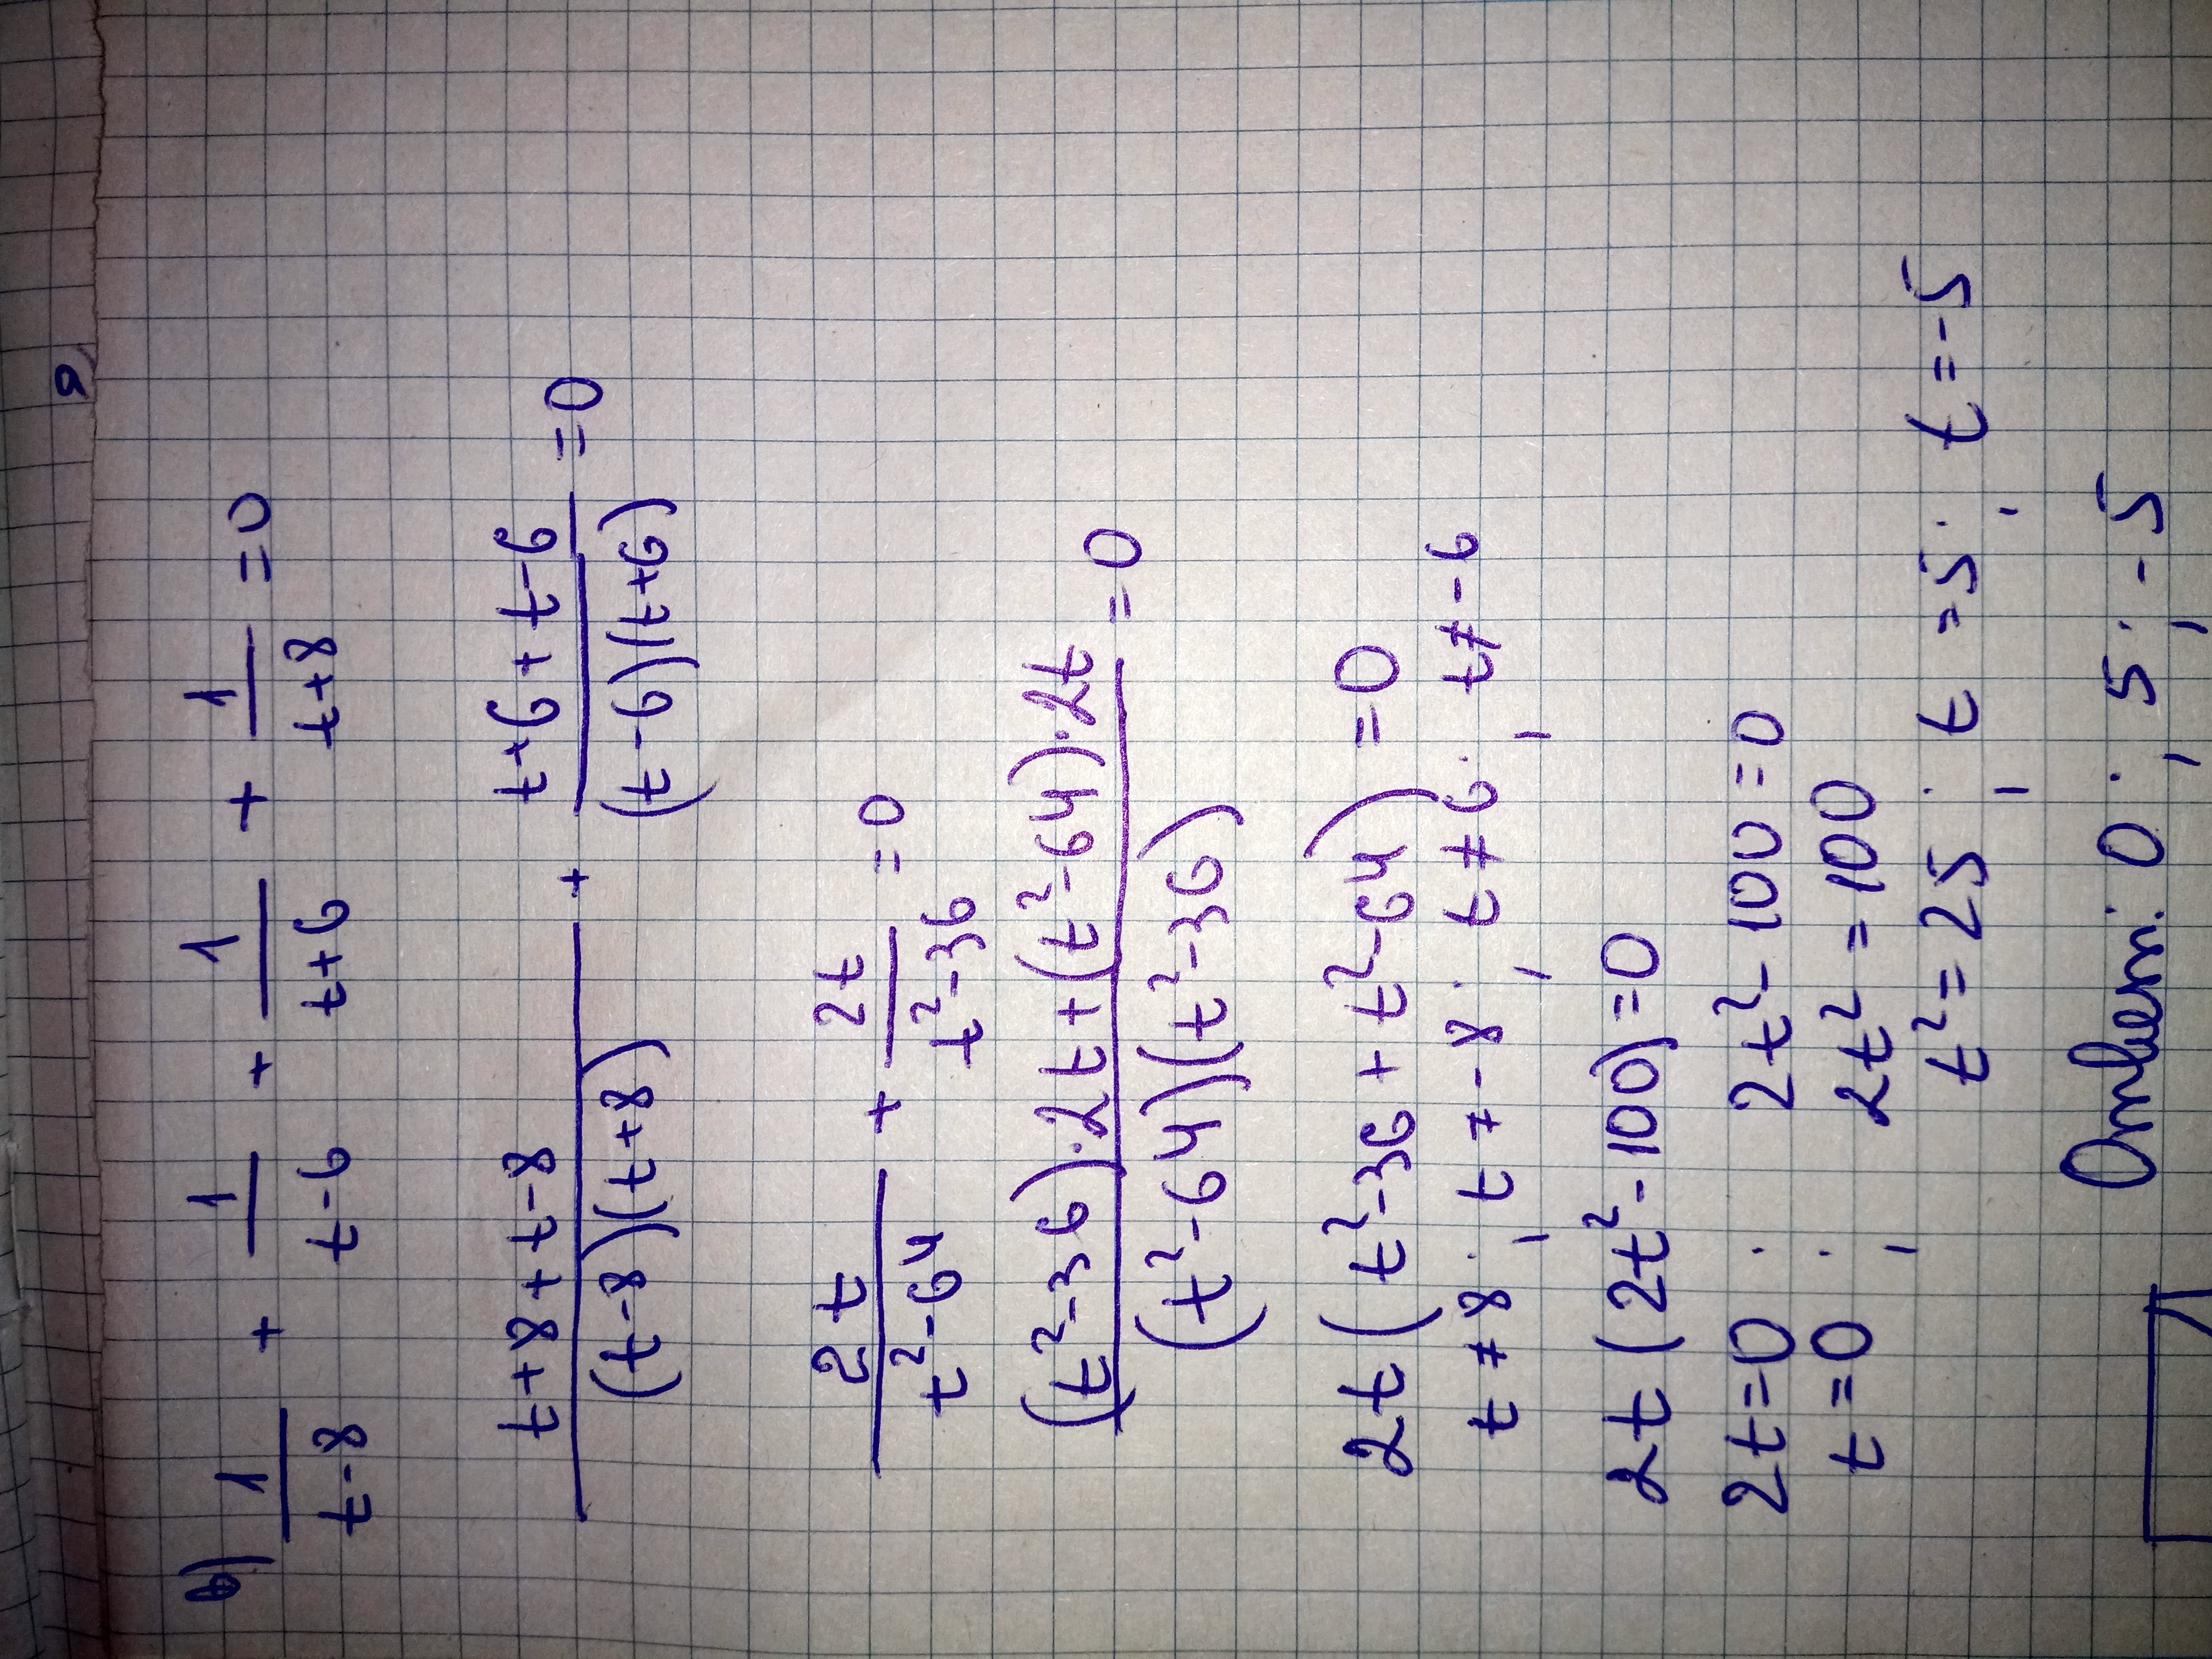 a)
в) 1/(t-8) + 1/(t-6) + 1/(t+6) + 1/(t+8) = 0
(t+8+t-8)/((t-8)(t+8)) + (t+6+t-6)/((t-6)(t+6)) = 0
2t/(t²-64) + 2t/(t²-36) = 0
((t²-36)·2t+(t²-64)·2t)/((t²-64)(t²-36)) = 0
2t(t²-36+t²-64) = 0
t≠8; t≠-8; t≠6; t≠-6
2t(2t²-100)=0
2t=0; 2t²-100=0
t=0; 2t²=100
t²=25; t=5; t=-5
Ответ: 0; 5; -5